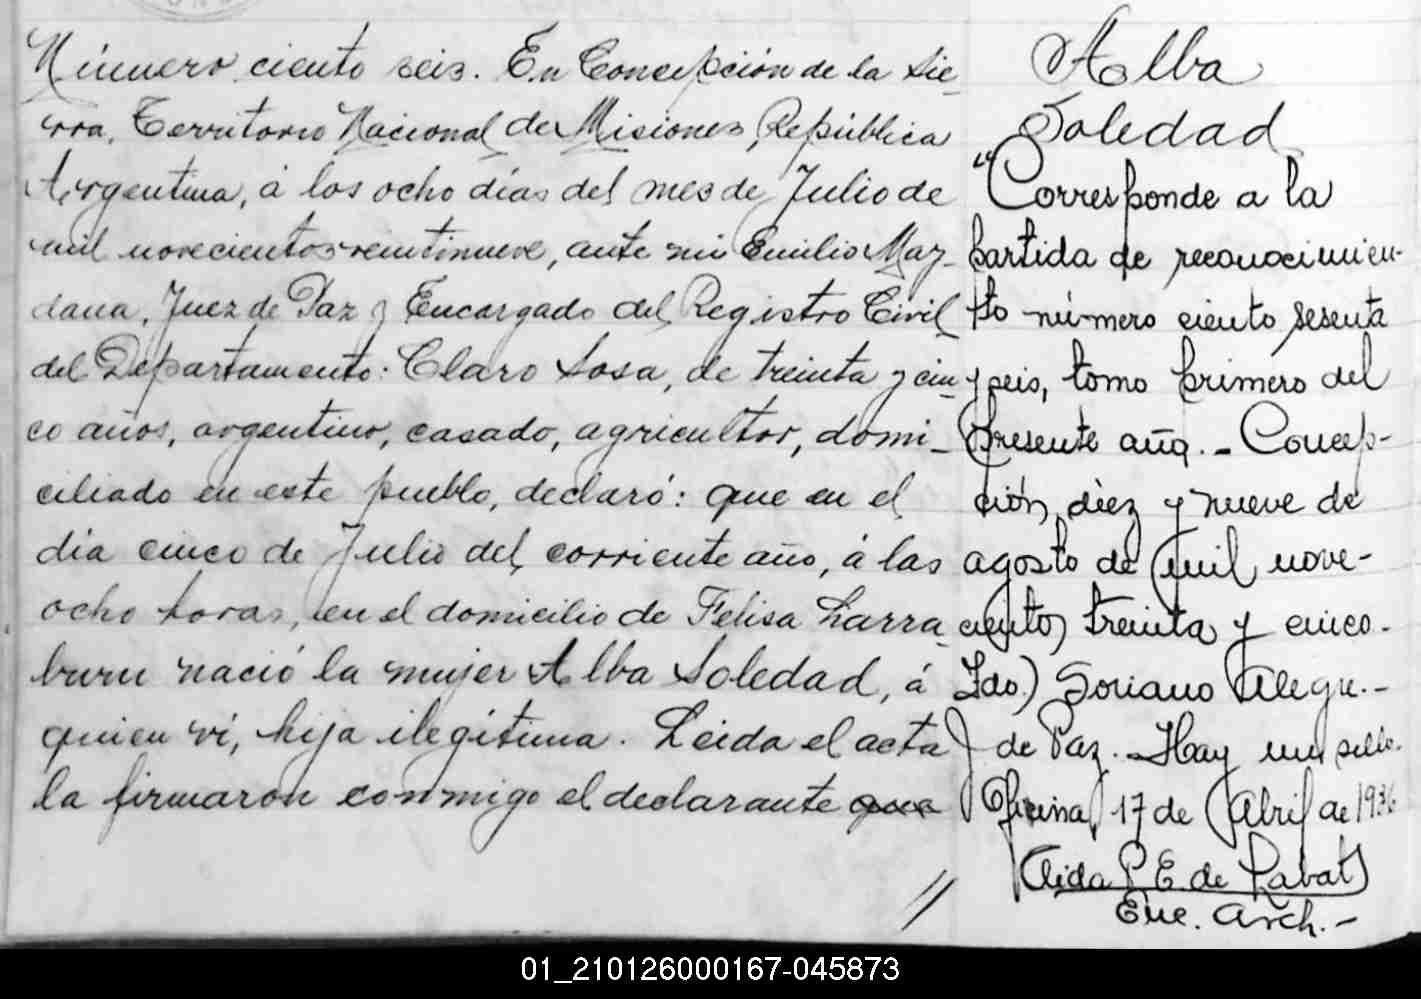 Número ciento seis. En Concepción de la Sie-
rra, Territorio Nacional de Misiones, República
Argentina, á los ocho días del mes de Julio de
mil novecientos veintinueve, ante mi Emilio May-
dana, Juez de Paz y Encargado del Registro Civil
del Departamento: Claro Sosa, de treinta y cin-
co años, argentino, casado, agricultor, domi-
ciliado en este pueblo, declaró: que en el
día cinco de Julio del corriente año, á las
ocho horas, en el domicilio de Felisa Larra-
buru nació la mujer Alba Soledad, á
quien ví, hija ilegítima. Leida el acta
la firmaron conmigo el declarante que
Alba
Soledad
"Corresponde a la
partida de reconocimien-
to número ciento sesenta
y seis, tomo primero del
presente año. - Concep-
ción, diez y nueve de
agosto de mil nove-
cientos treinta y cinco.
Fdo.) Soriano Alegre.-
J. de Paz. - Hay un sello.
Oficina, 17 de Abril de 1936
Aida P. E. de Labat
Enc. Arch.-
01_210126000167-045873